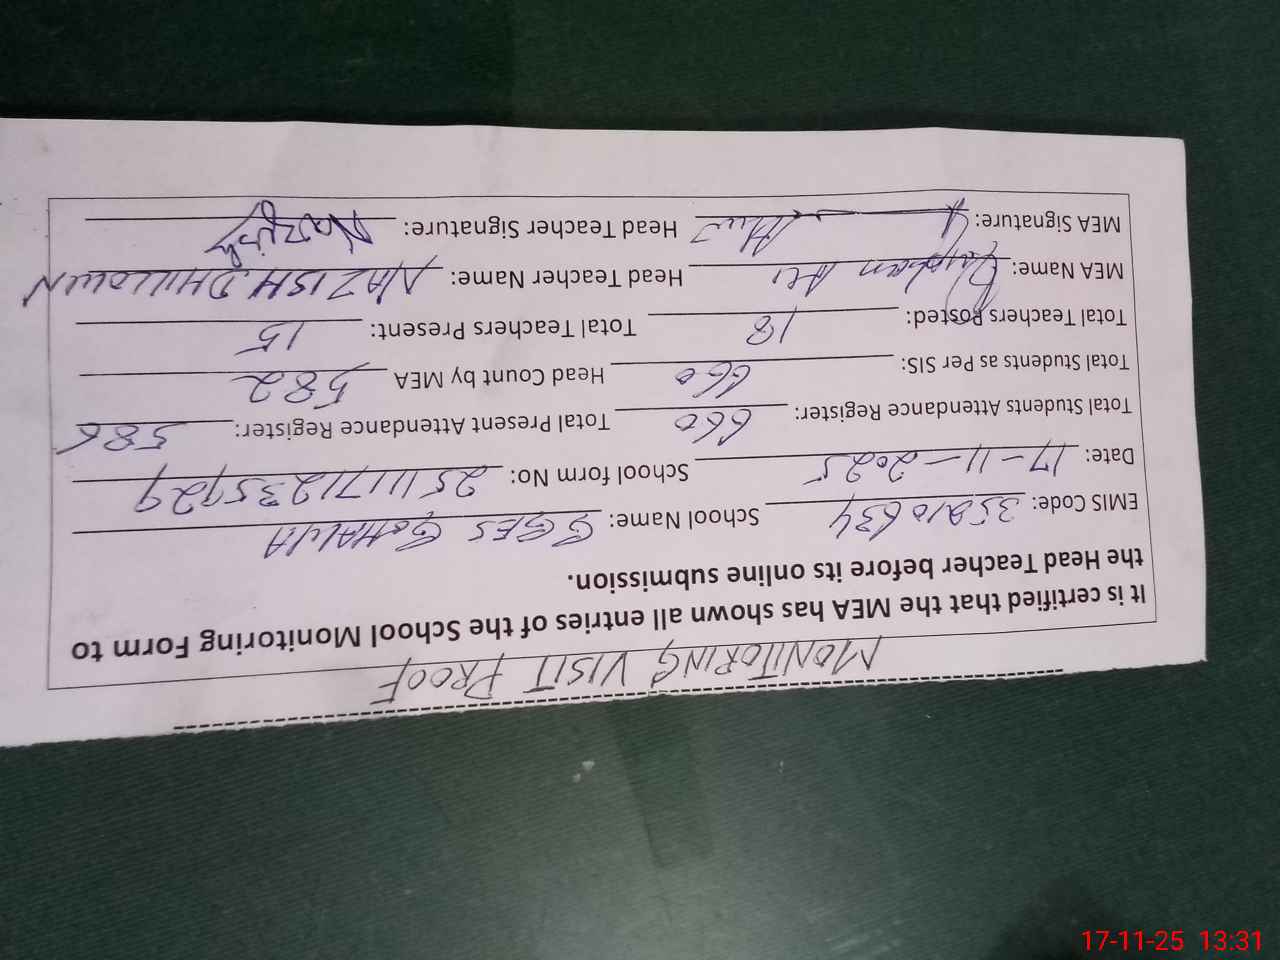 MONITORING VISIT PROOF
It is certified that the MEA has shown all entries of the School Monitoring Form to
the Head Teacher before its online submission.
EMIS Code: 35210634 School Name: GGES GOHAWA
Date: 17-11-2025 School form No: 2511171235929
Total Students Attendance Register: 660 Total Present Attendance Register: 586
Total Students as Per SIS: 660 Head Count by MEA 582
Total Teachers Posted: 18 Total Teachers Present: 15
MEA Name: Ali Head Teacher Name: NAZISH DHILLOUN
MEA Signature: Head Teacher Signature: Nazish
17-11-25 13:31